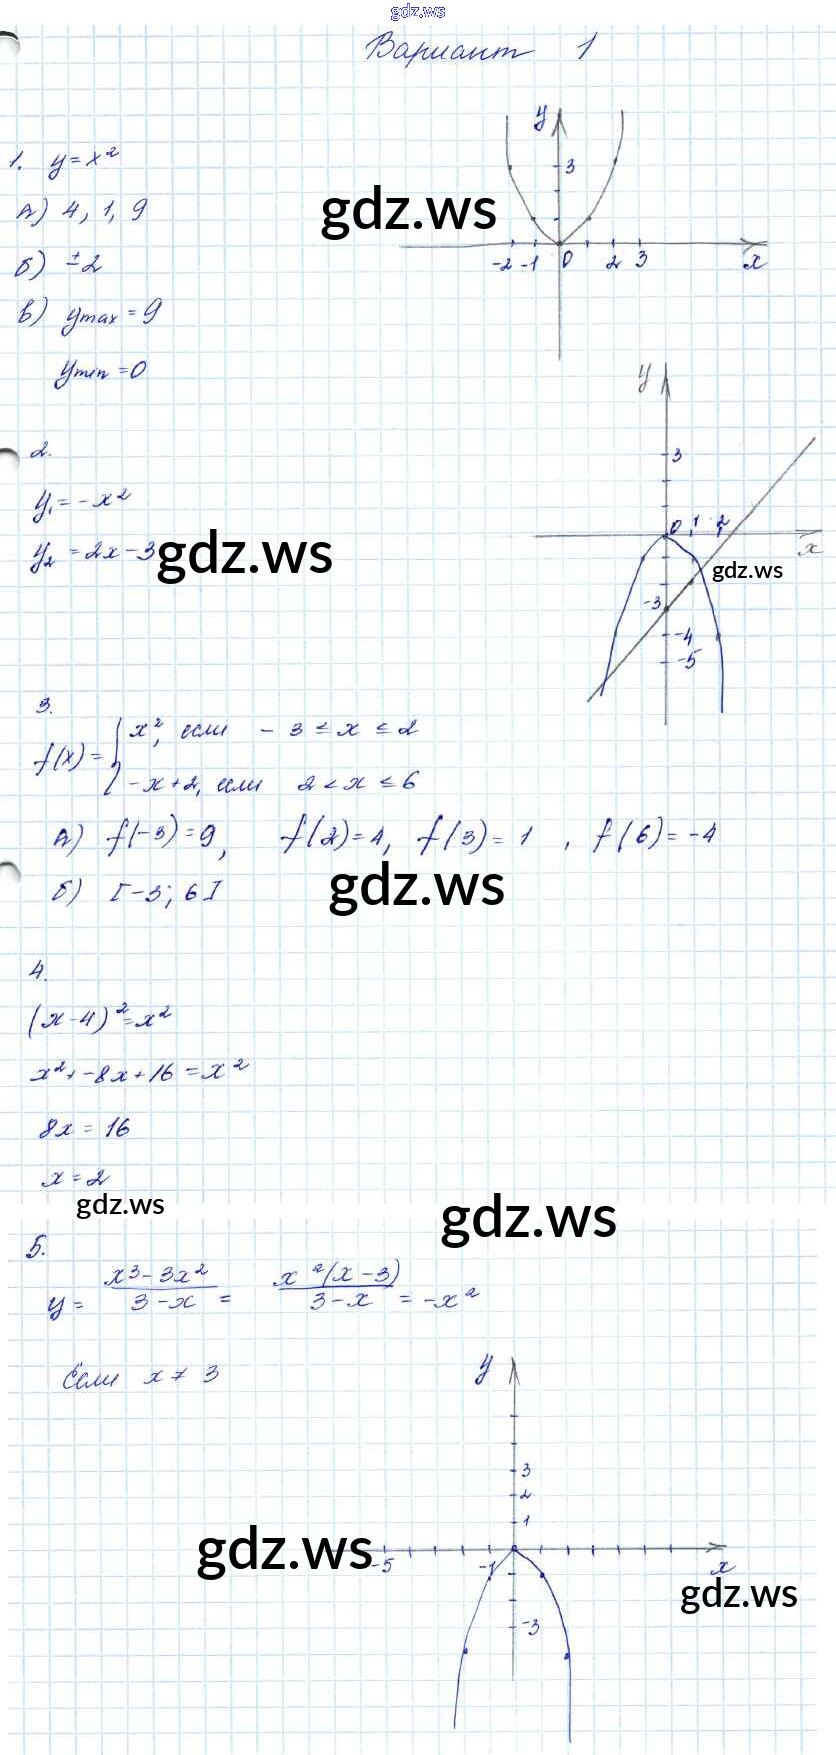 gdz.ws
Вариант 1
1. y = x²
А) 4, 1, 9
б) ±2
в) ymax = 9
ymin = 0
y
3
-2 -1 0 2 3 x
gdz.ws
2.
y₁ = -x²
y₂ = 2x - 3
gdz.ws
y
3
0 1 2
x
gdz.ws
-3
-4
-5
3.
f(x) = { x², если - 3 ≤ x ≤ 2
-x+2, если 2 < x ≤ 6
А) f(-3) = 9, f(2) = 4, f(3) = 1, f(6) = -4
б) [-3; 6]
gdz.ws
4.
(x-4)² = x²
x² + -8x + 16 = x²
8x = 16
x = 2
gdz.ws
gdz.ws
5.
y = (x³ - 3x²)/(3 - x) = (x²(x - 3))/(3 - x) = -x²
Если x ≠ 3
y
3
2
1
-5 -1 x
-3
gdz.ws
gdz.ws